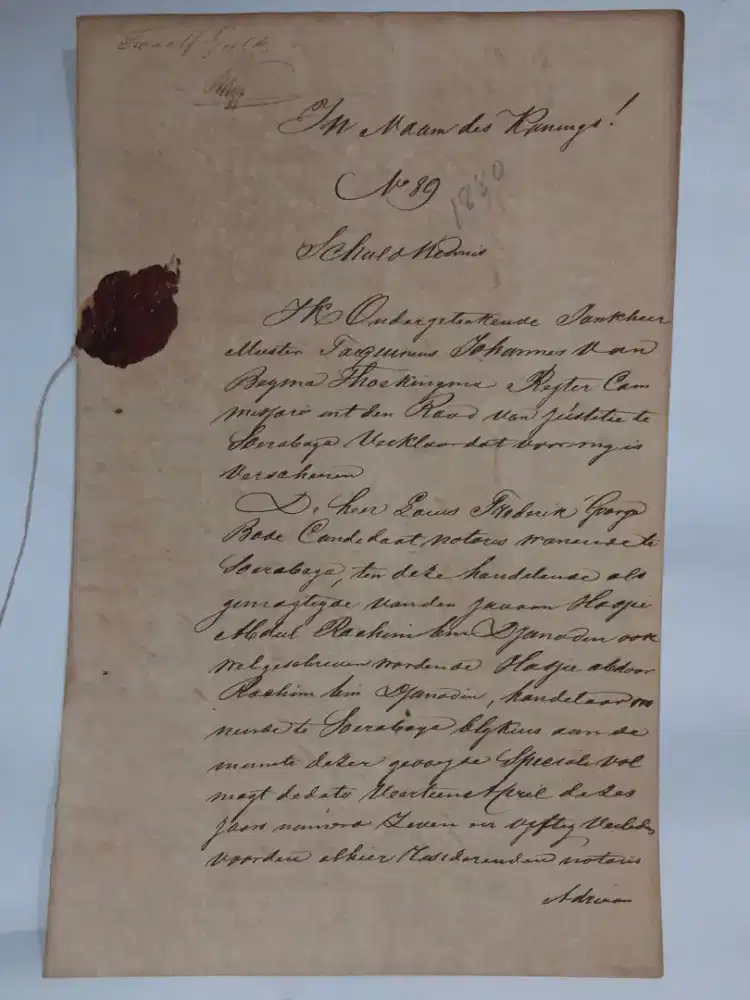 Twaalf Guld
In Naam des Konings!
No 89
1880
Schuldkennis
Ik Ondergeteekende Jonkheer
Meester Tarquinius Johannes van
Beyma Thoe Kingma Regter Com
missaris uit den Raad van Justitie te
Soerabaya Verklaar dat voor mij is
Verschenen
De heer Louis Frederik George
Bode Candidaat notaris wonende te
Soerabaya, ten deze handelende als
gemagtigde van den Javaan Hadjie
Abdul Rachim bin Djanodin ook
welgeschreven wordende Hadjie abdoor
Rachim bin Djanodin, handelaar wo
nende te Soerabaya blykens aan de
minute dezer gevoegde Speciale vol
magt de dato Veertien April dezes
jaars numero Zeven en vyftig Verleden
voorden alhier residerenden notaris
Adriaan